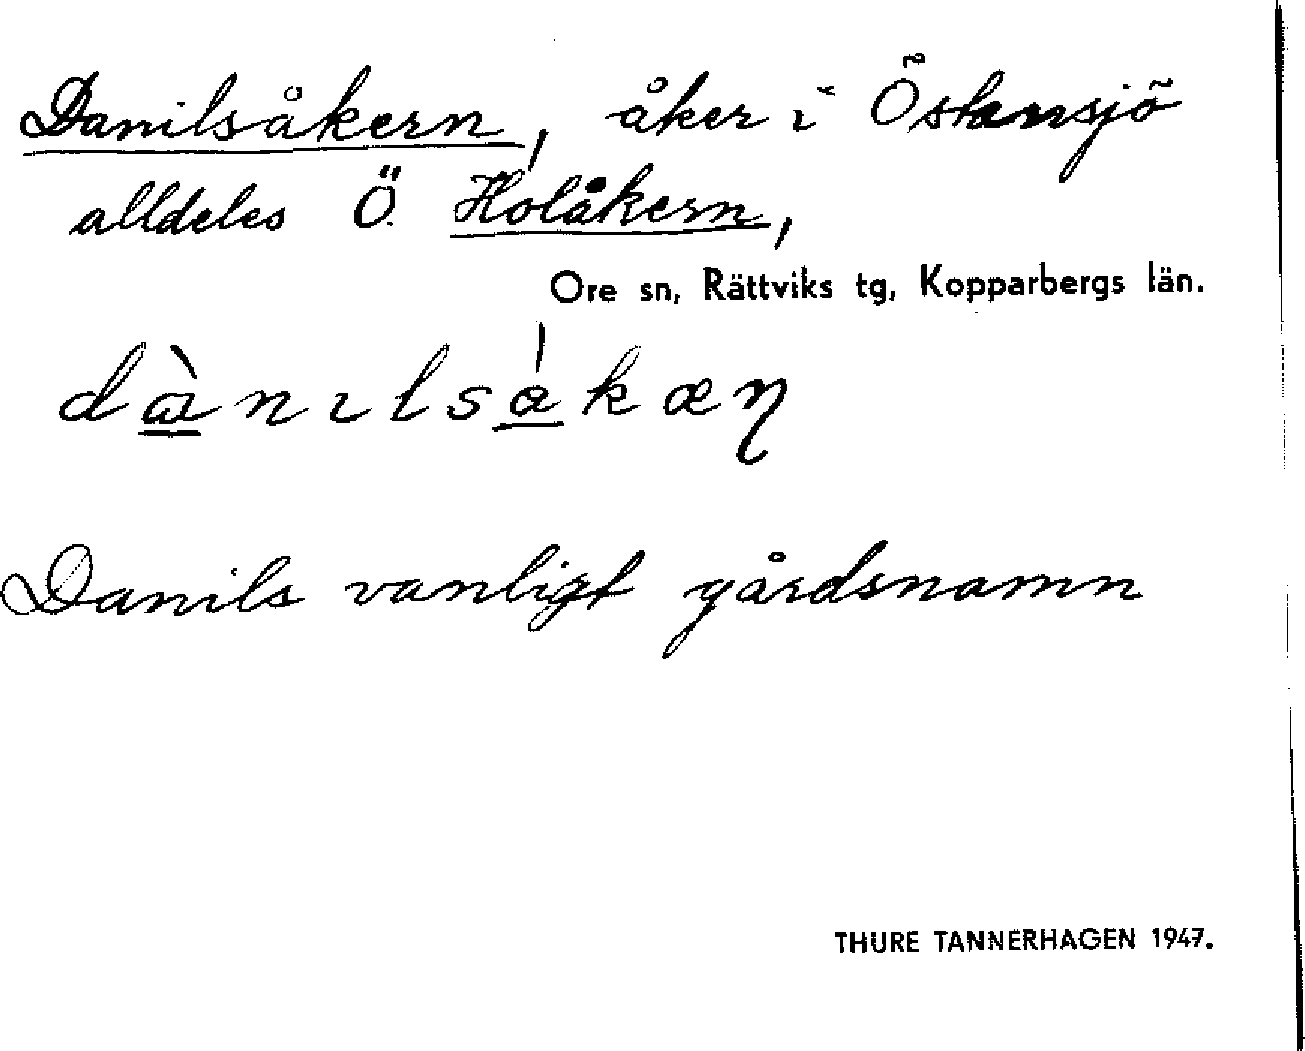 Danilsåkern, åker i Östansjö
alldeles Ö. Holåkern,
Ore sn, Rättviks tg, Kopparbergs län.
Danils vanligt gårdsnamn
THURE TANNERHAGEN 1947.